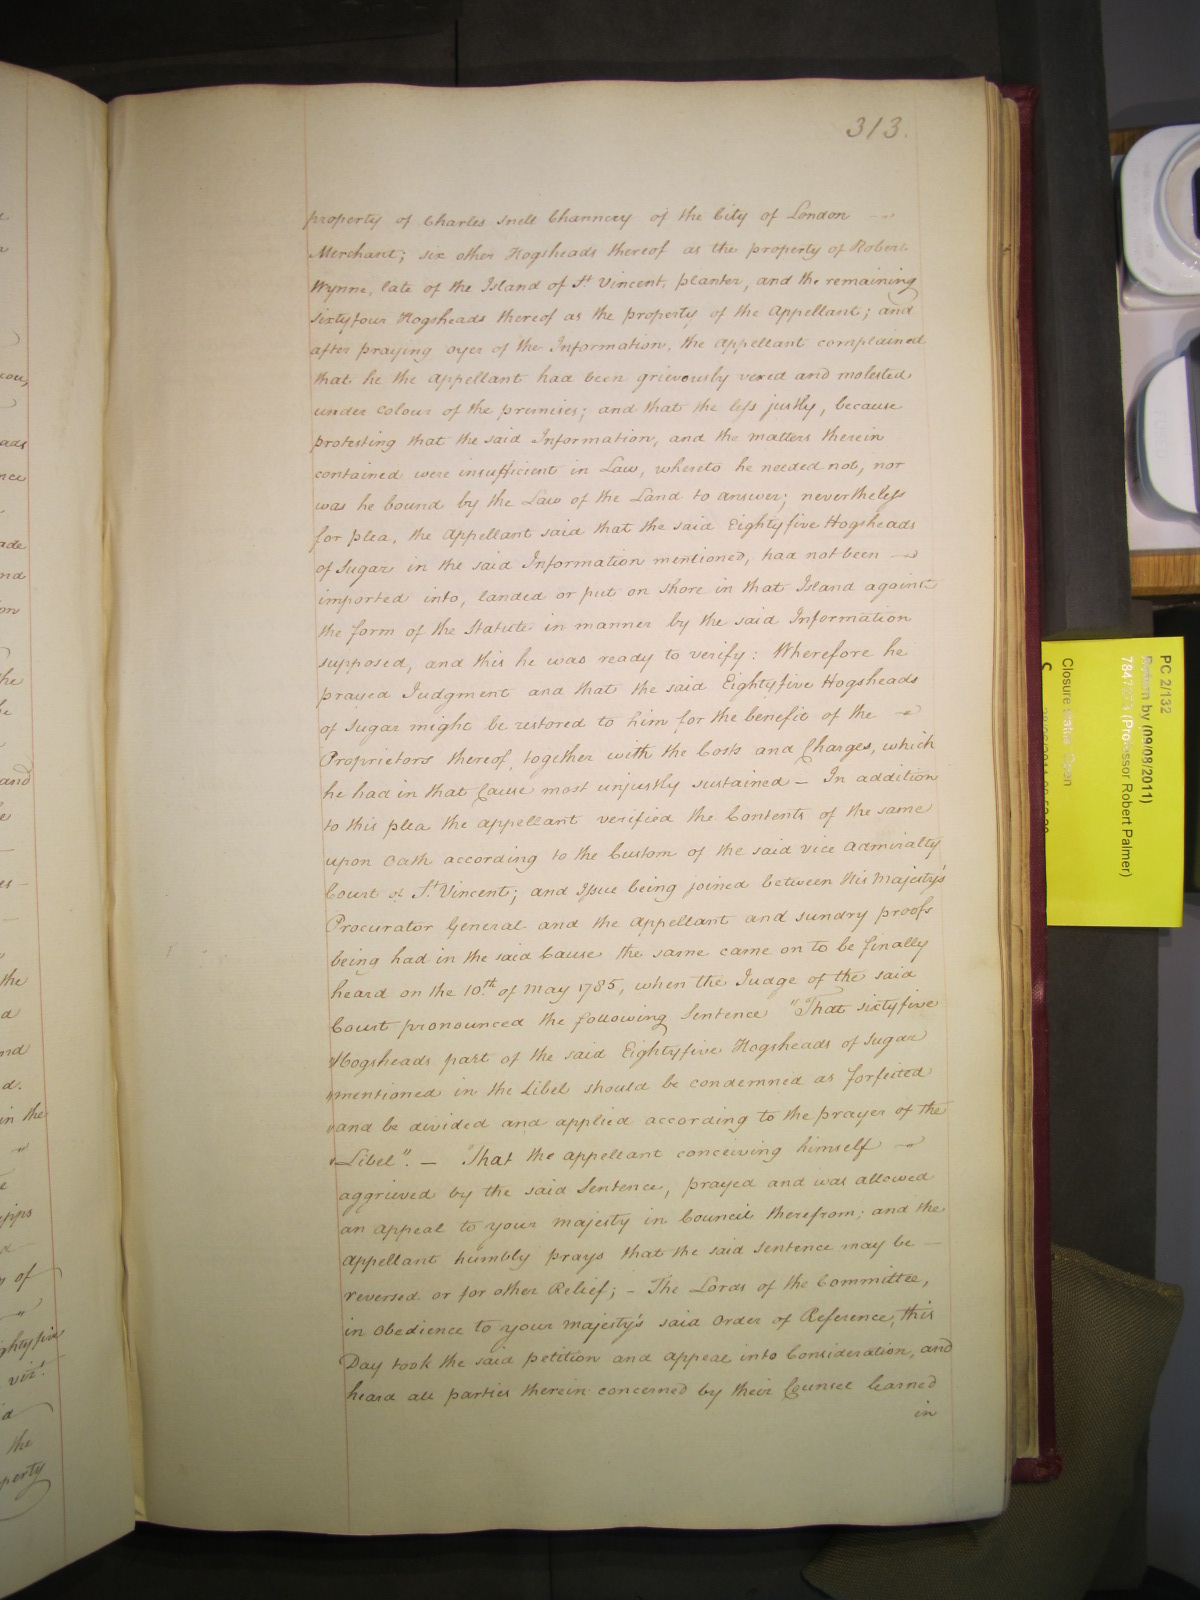 313.
property of Charles Snell Channcey of the City of London
Merchant; six other Hogsheads thereof as the property of Robert
Wynne, late of the Island of St. Vincent, planter, and the remaining
sixtyfour Hogsheads thereof as the property of the Appellant; and
after praying oyer of the Information, the appellant complained
that he the appellant had been grievously vexed and molested
under colour of the premises; and that the less justly, because
protesting that the said Information, and the matters therein
contained were insufficient in Law, whereto he needed not, nor
was he bound by the Law of the Land to answer; nevertheless
for plea, the appellant said that the said Eightyfive Hogsheads
of Sugar in the said Information mentioned, had not been
imported into, landed or put on shore in that Island against
the form of the Statute in manner by the said Information
supposed, and this he was ready to verify: Wherefore he
prayed Judgment and that the said Eightyfive Hogsheads
of Sugar might be restored to him for the benefit of the
Proprietors thereof, together with the Costs and Charges, which
he had in that Cause most unjustly sustained — In addition
to this plea the appellant verified the Contents of the same
upon Oath according to the Custom of the said vice admiralty
Court of St. Vincent; and Issue being joined between His Majesty's
Procurator General and the appellant and sundry proofs
being had in the said Cause the same came on to be finally
heard on the 10th. of May 1785, when the Judge of the said
Court pronounced the following Sentence "That sixtyfive
"Hogsheads part of the said Eightyfive Hogsheads of Sugar
"mentioned in the Libel should be condemned as forfeited
"and be divided and applied according to the prayer of the
"Libel". — That the appellant conceiving himself
aggrieved by the said Sentence, prayed and was allowed
an appeal to your majesty in Council therefrom; and the
appellant humbly prays that the said sentence may be —
reversed or for other Relief; — The Lords of the Committee,
in obedience to your majesty's said order of Reference, this
Day took the said petition and appeal into Consideration, and
heard all parties therein concerned by their Counsel learned
in
PC 2/132
Return by (09/08/2011)
(Professor Robert Palmer)
Closure status Open